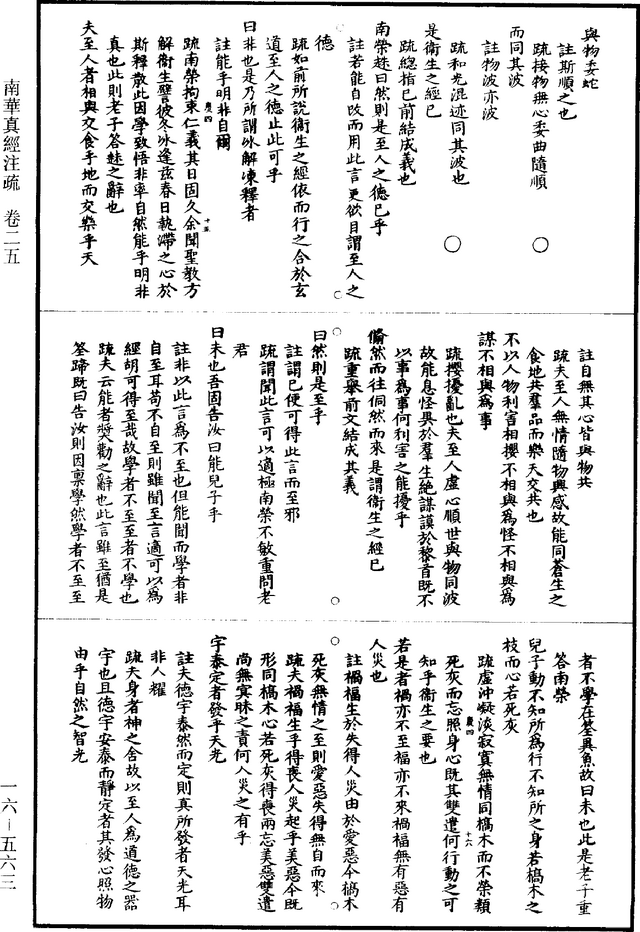 南華真經注疏　卷二五
與物委蛇
註斯順之也
疏接物無心委曲隨順
而同其波
註物波亦波
疏和光混迹同其波也
是衛生之經已
疏總指已前結成義也
南榮趎曰然則是至人之德已乎
註若能自改而用此言更欲自謂至人之
德
疏如前所說衛生之經依而行之合於玄
道至人之德止此可乎
曰非也是乃所謂冰解凍釋者
註能乎明非自爾
疏南榮拘束仁義其日固久余聞聖教方
解衛生譬彼冬冰逢茲春日執滯之心於
斯釋散此因學致悟非率自然能乎明非
真也此則老子答趎之辭也
夫至人者相與交食乎地而交樂乎天
註自無其心皆與物共
疏夫至人無情隨物興感故能同蒼生之
食地共羣品而樂天交共也
不以人物利害相攖不相與為怪不相與為
謀不相與為事
疏攖擾亂也夫至人虛心順世與物同波
故能息怪異於羣生絕謀謨於黎首既不
以事為事何利害之能擾乎
翛然而往侗然而來是謂衛生之經已
疏重舉前文結成其義
曰然則是至乎
註謂已便可得此言而至邪
疏謂聞此言可以適極南榮不敏重問老
君
曰未也吾固告汝曰能兒子乎
註非以此言為不至也但能聞而學者非
自至耳苟不自至則雖聞至言適可以為
經胡可得至哉故學者不至至者不學也
疏夫云能者獎勸之辭也此言雖至猶是
筌蹄既曰告汝則因稟學然學者不至至
者不學在筌異魚故曰未也此是老子重
答南榮
兒子動不知所為行不知所之身若槁木之
枝而心若死灰
疏虛沖凝淡寂寞無情同槁木而不榮類
死灰而忘照身心既其雙遣何行動之可
知乎衛生之要也
若是者禍亦不至福亦不來禍福無有惡有
人災也
註禍福生於失得人災由於愛惡今槁木
死灰無情之至則愛惡失得無自而來
疏夫禍福生乎得喪人災起乎美惡今既
形同槁木心若死灰得喪兩忘美惡雙遣
尚無冥昧之責何人災之有乎
宇泰定者發乎天光
註夫德宇泰然而定則真所發者天光耳
非人耀
疏夫身者神之舍故以至人為道德之器
宇也且德宇安泰而靜定者其發心照物
由乎自然之智光
一六—五六三